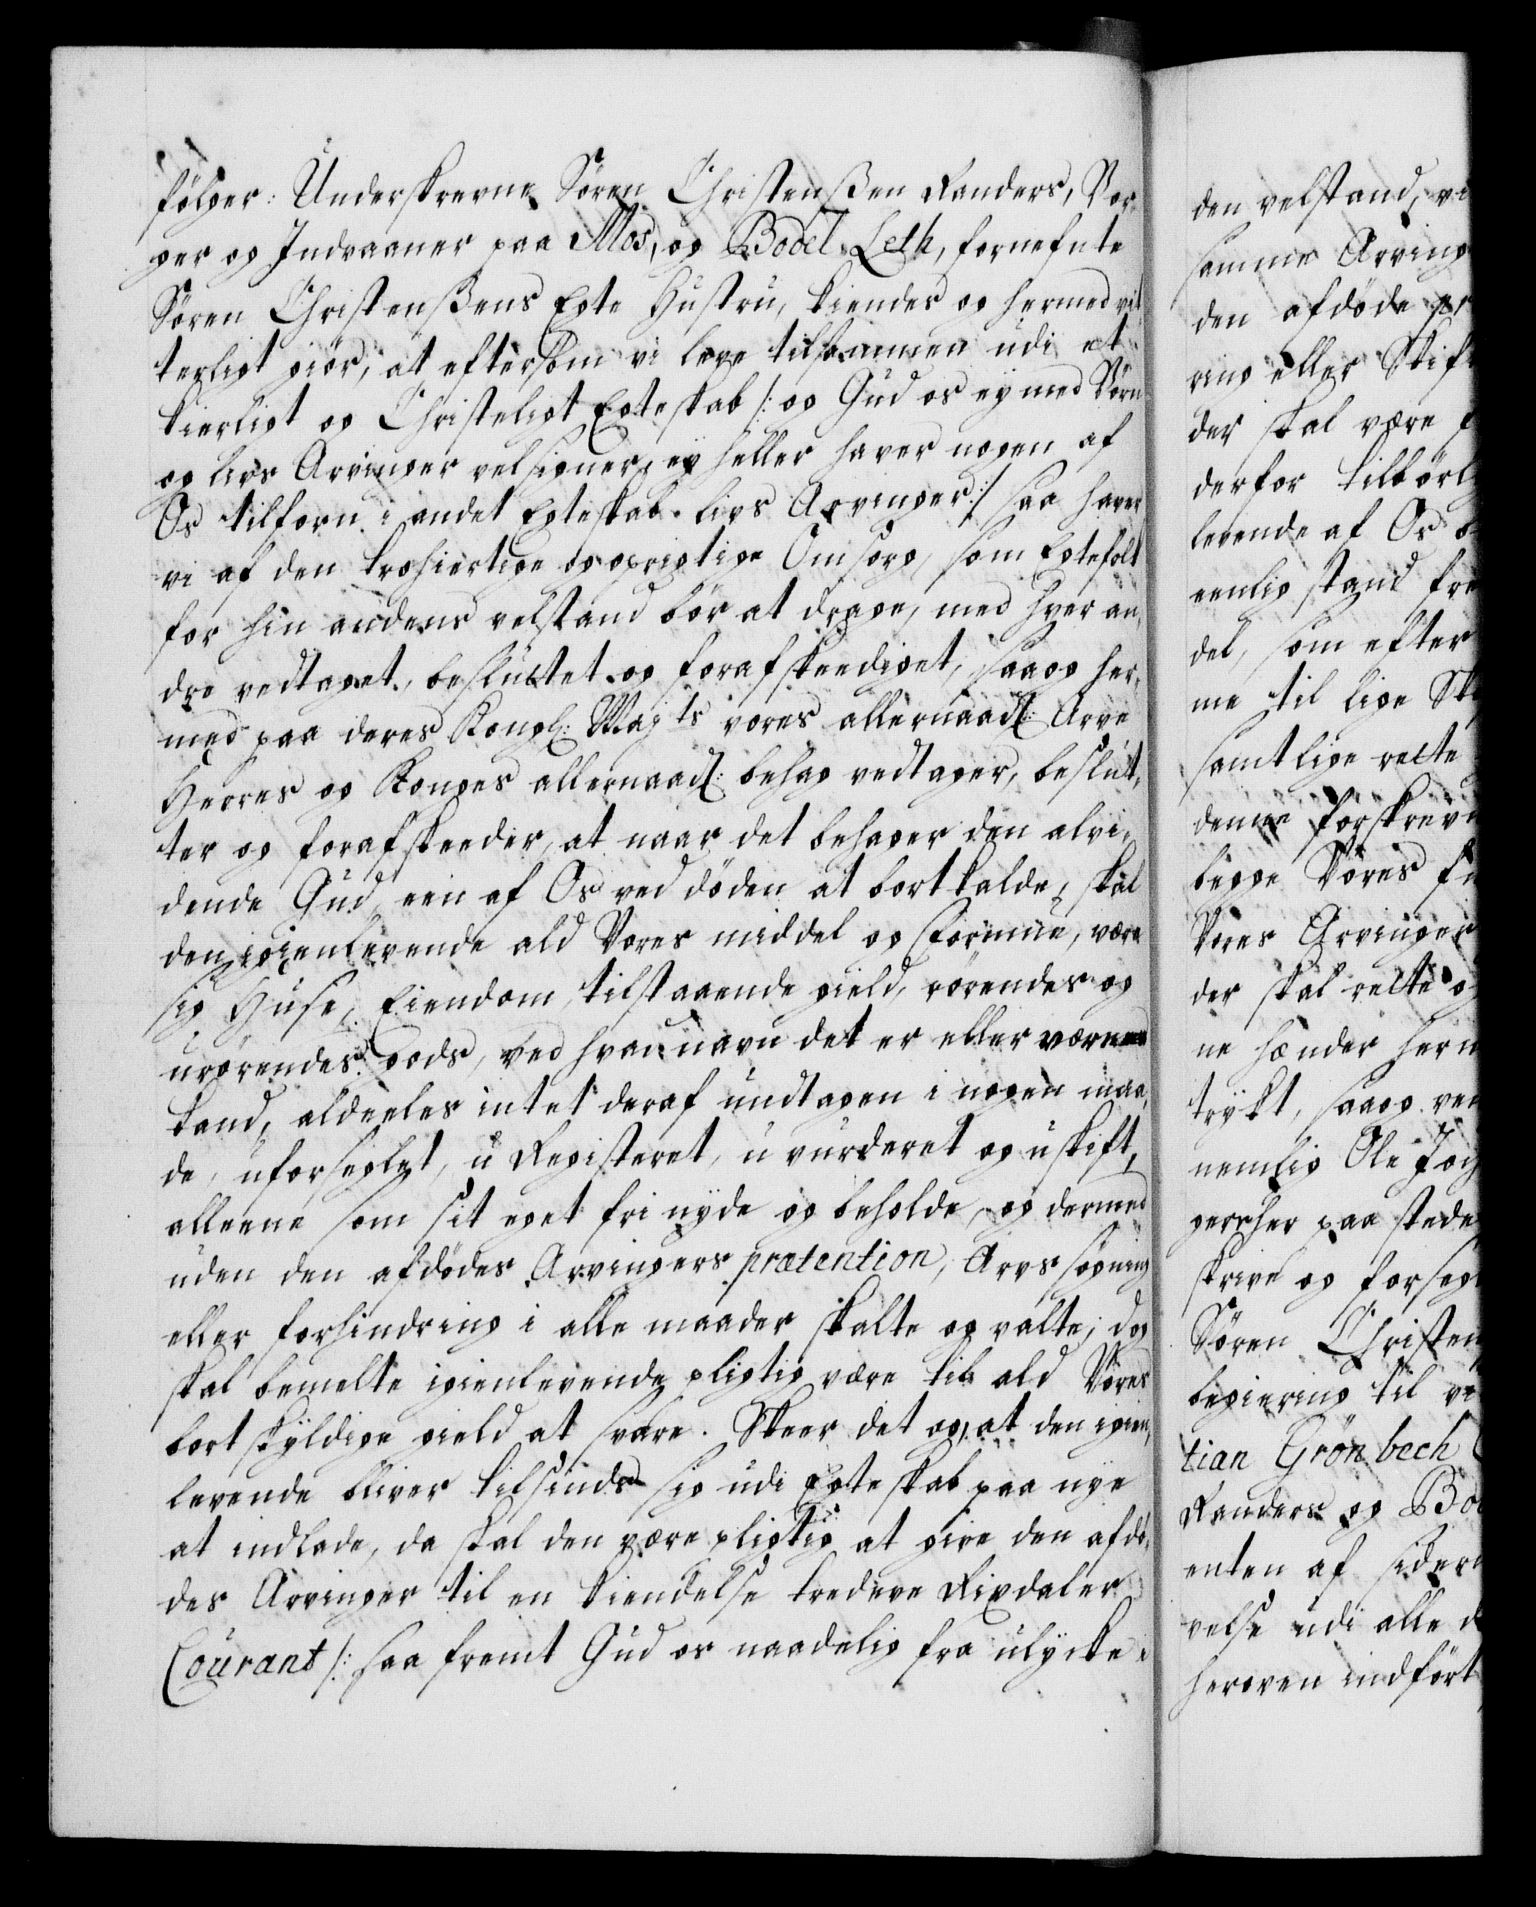 følger: Underskrevne Sören Christenßen Randers, Bor-
ger og Indvaaner paa Mos, og Bodel Leth, fornefnte
Sören Christenßens Egte Hustru, kiender og hermed vit-
terligt giør, at eftersom vi leve tilsammen udi et
kierligt og Christeligt Egteskab /: og Gud os ey med Børn
og livs Arvinger velsigner, ey heller haver nogen af
Os tilforn i andet Egteskab livs Arvinger :/ saa haver
vi af den trohiertige og oprigtige Omsorg, som Egtefolk
for hin andens velstand bør at drage, med hver an-
dre vedtaget, besluttet og forafskeediget, saa og her-
med paa deres Kongl: Majts vores allernaads: Arve
Herres og Konges allernaads: behag vedtager, beslut-
ter og forafskeeder, at naar det behager den alvi-
dende Gud een af Os ved döden at bortkalde, skal
den igienlevende ald Vores middel og formue, være
sig Huse, Eiendom, tilstaaende gield, rørendes og
urørendes gods, ved hvad navn det er eller være
kand, aldeeles intet deraf undtagen i nogen maa-
de, uforseglet, u Registeret, u vurderet og uskift,
alleene som sit eget fri nyde og beholde, og dermed
uden den afdødes Arvingers prætention, Arvs søgning
eller forhindring i alle maader skalte og valte; dog
skal bemelte igienlevende pligtig være til ald Vores
bortskyldige gield at svare. Skeer det og, at den igien-
levende bliver tilsinds sig udi Egteskab paa nye
at indlade, da skal den være pligtig at give den afdö-
des Arvinger til en kiendelse tredive Rixdaler
Courant /: saa fremt Gud os naadelig fra ulycke i
den velstand, vi
samme Arving
den afdøde
ring eller Skift
der skal være
derfor tilbørl
levende af Os
eenlig stand fre
del, som efter
me til lige Sk
samtlige rette
denne forskrevn
begge Vores
Vores Arvinger
der skal rette og
ne hænder hern
trykt, saa og ven
nemlig Ole Joch
ger her paa stede
skrive og forsegl
Sören Christen
begiering til vi
tian Grönbech
Randers og Bo
enten af sider
velse udi alle d
heroven indført